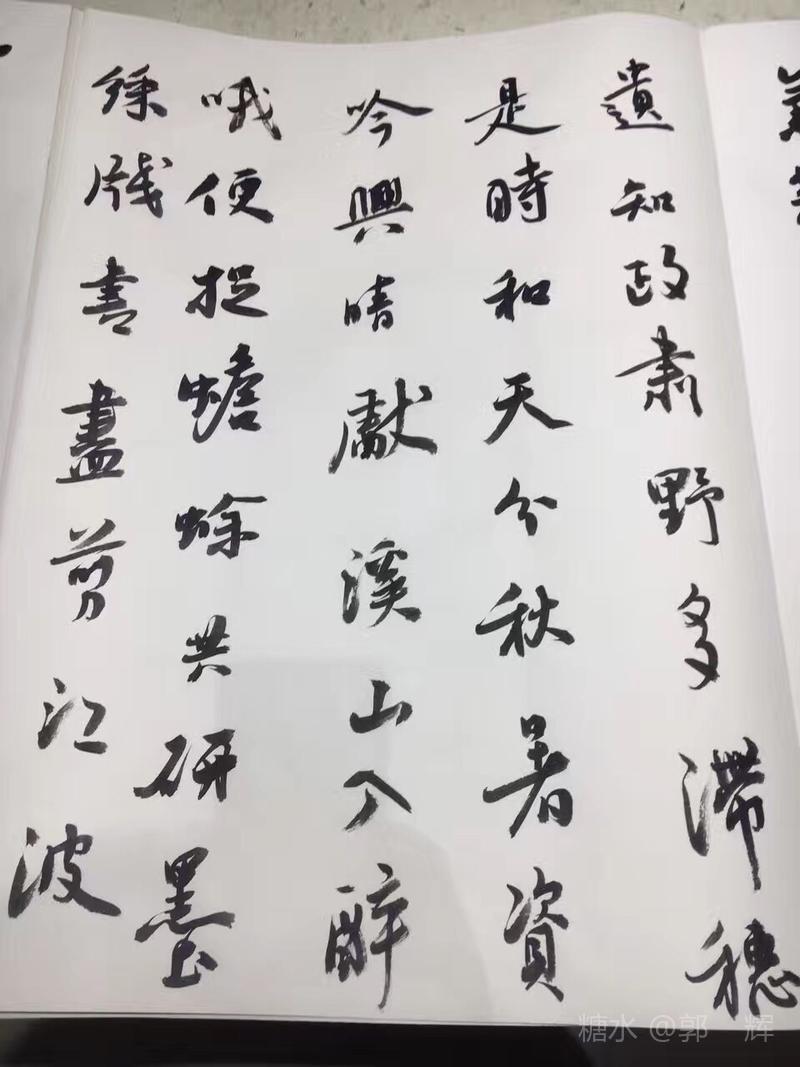 遺知政肅野多滯穗
是時和天分秋暑資
吟興晴獻溪山入醉
哦便捉蟾蜍共研墨
綵牋書盡剪江波
糖水 @郭 辉